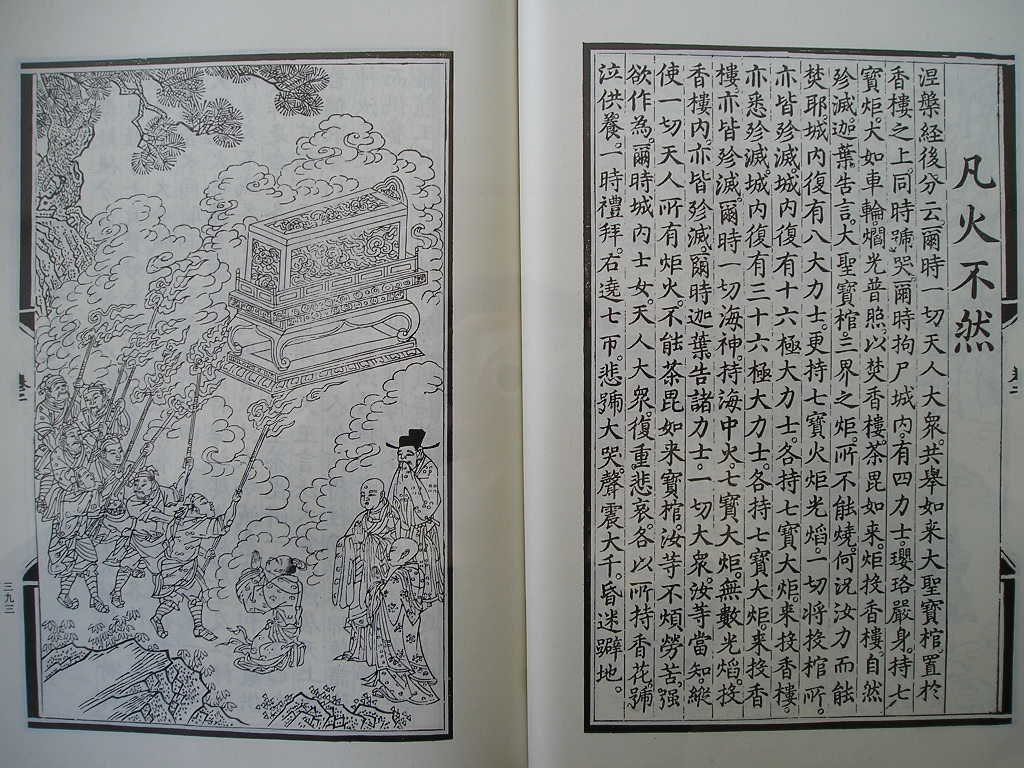 凡火不然
涅槃經後分云爾時一切天人大衆。共舉如來大聖寶棺。置於
香樓之上。同時號哭。爾時拘尸城內。有四力士。瓔珞嚴身。持七
寶炬。大如車輪。爓光普照。以焚香樓茶毘如來。炬投香樓自然
殄滅。迦葉告言。大聖寶棺。三界之炬。所不能燒。何況汝力而能
焚耶。城內復有八大力士。更持七寶火炬光焰。一切將投棺所。
亦皆殄滅。城內復有十六極大力士。各持七寶大炬。來投香樓。
亦悉殄滅。城內復有三十六極大力士。各持七寶大炬。來投香
樓。亦皆殄滅。爾時一切海神。持海中火。七寶大炬。無數光焰。投
香樓內。亦皆殄滅。爾時迦葉告諸力士。一切大衆。汝等當知。縱
使一切天人所有炬火。不能茶毘如來寶棺。汝等不煩勞苦。强
欲作為。爾時城內士女。天人大衆。復重悲哀。各以所持香花。號
泣供養。一時禮拜。右遶七帀。悲號大哭。聲震大千。昏迷躃地。
三九三